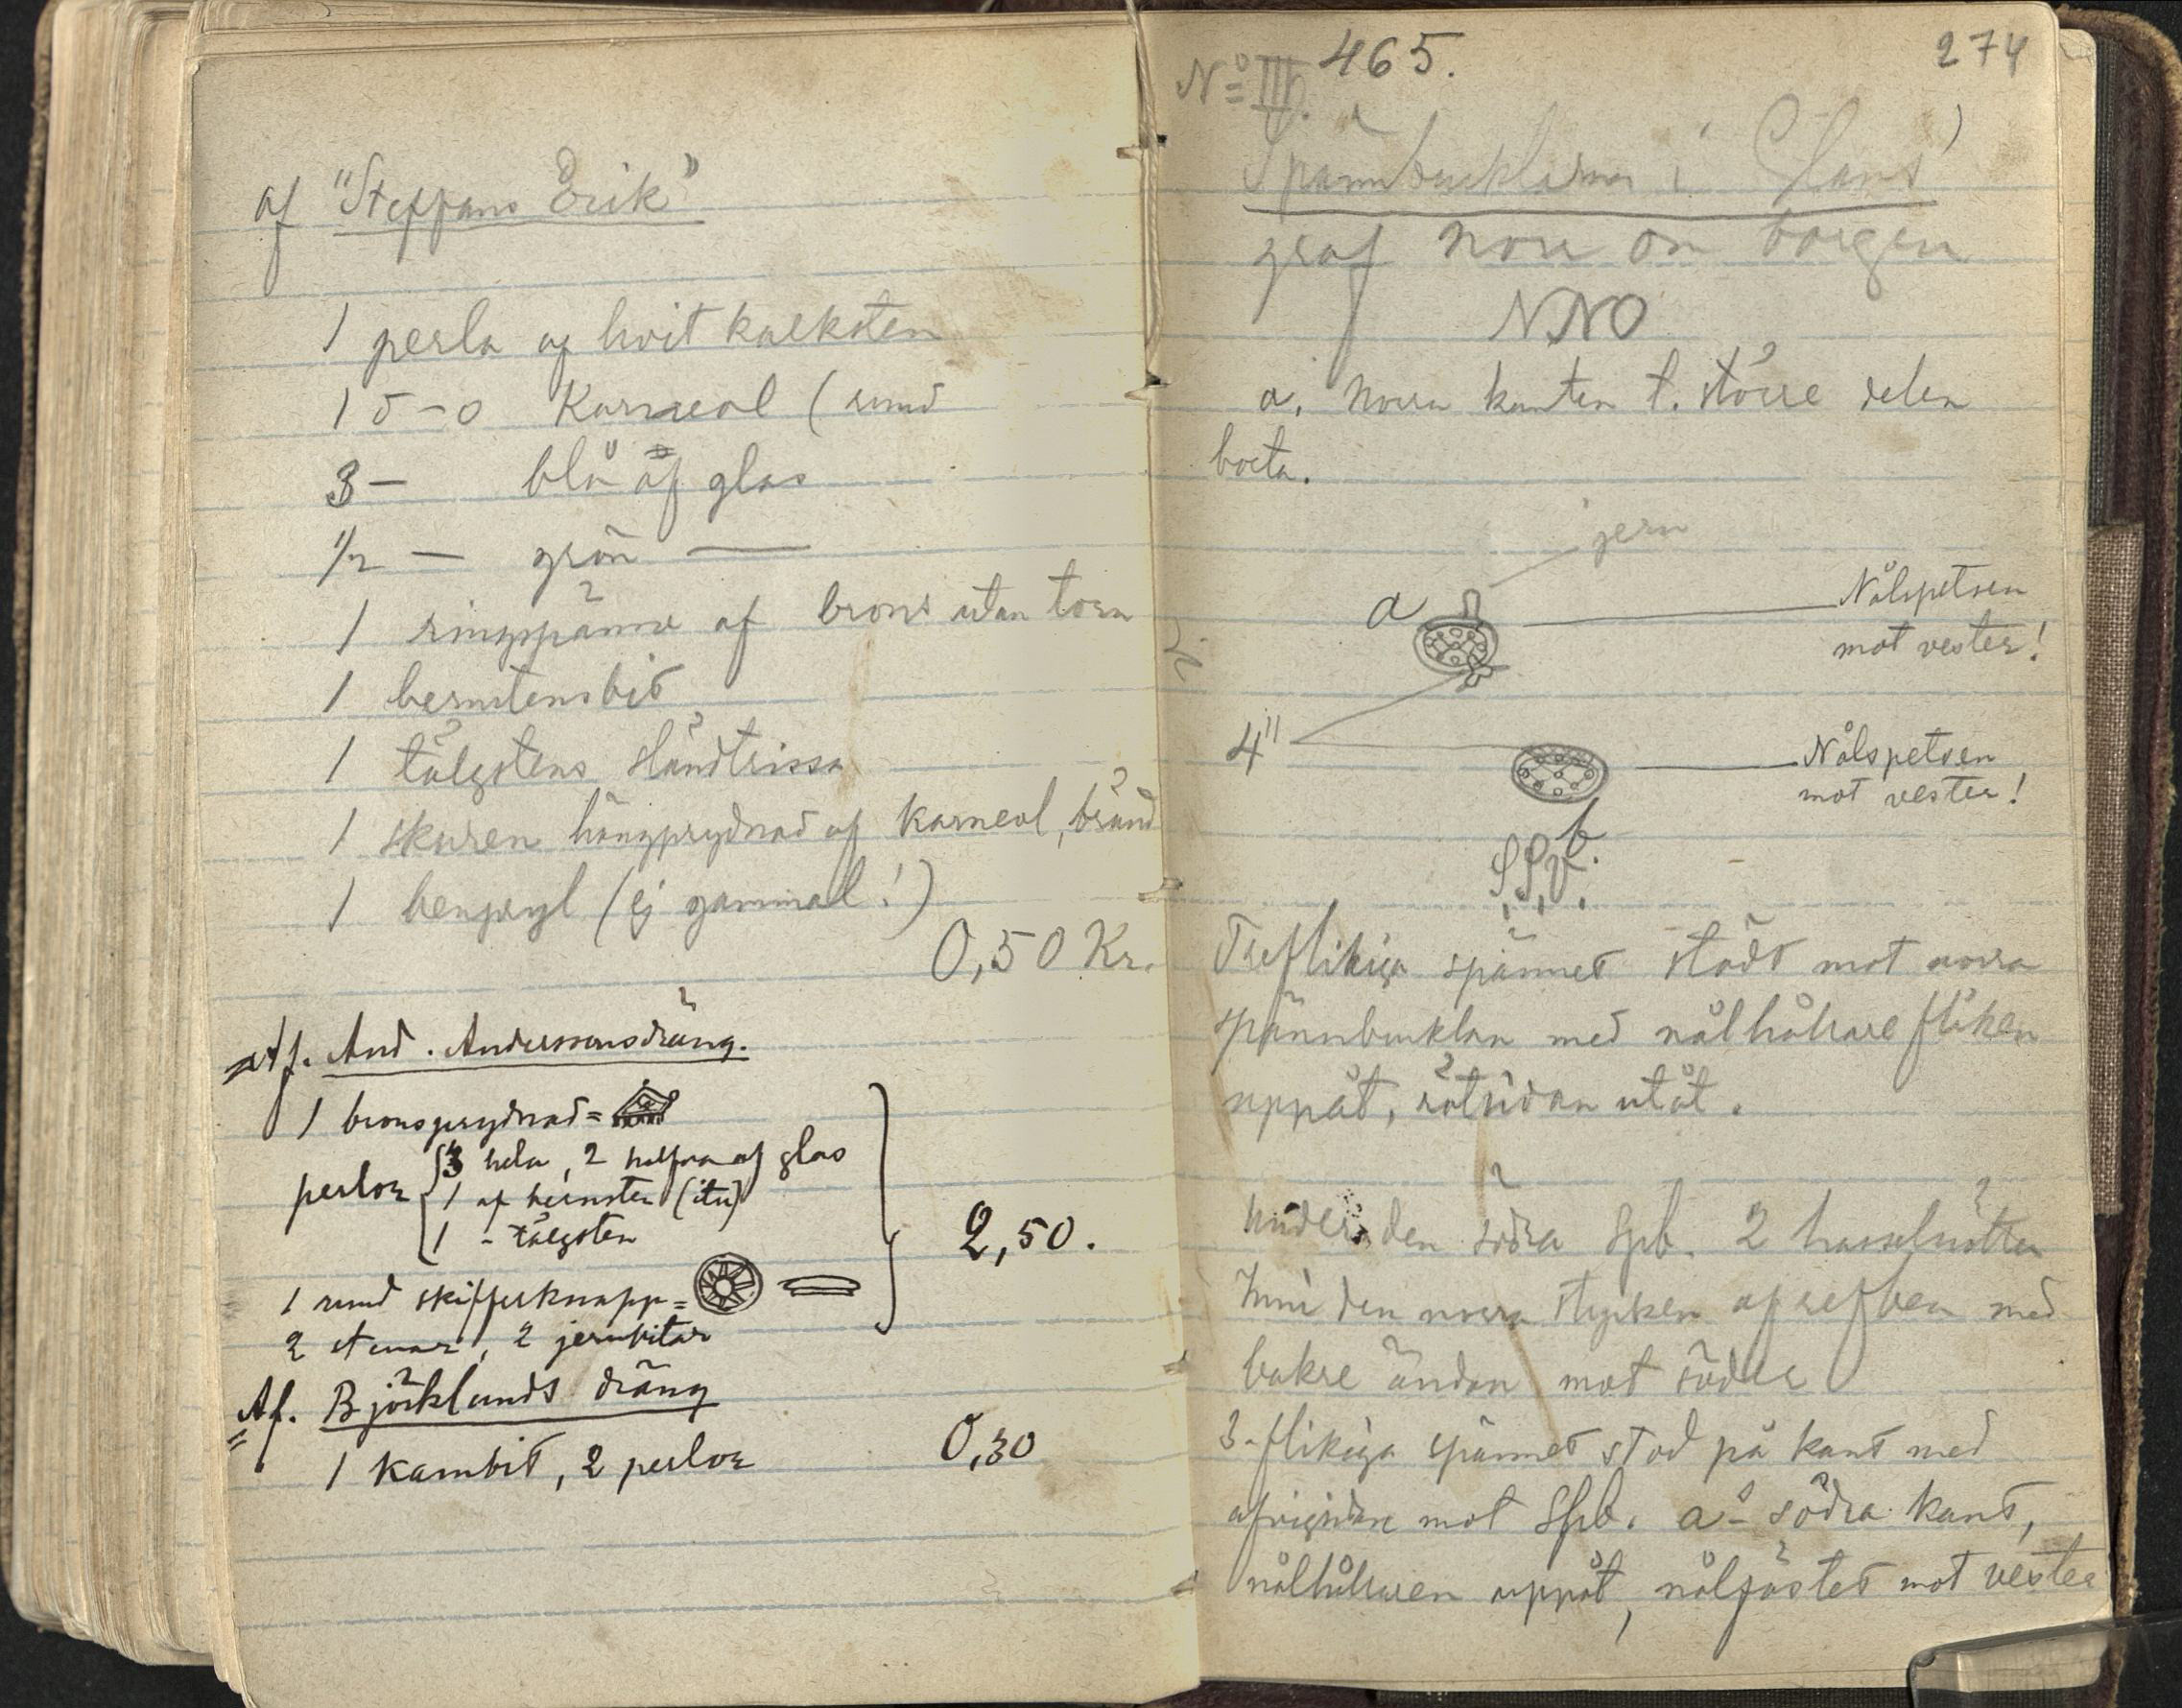 af "Steffans Erik"
1 perla af hvit kalksten
1 d-o Karneol (rund
3 — blå af glas
1/2 — grön —
1 ringspänne af brons utan torn
1 bernstensbit
1 tälgstens sländtrissa
1 skuren hängprydnad af karneol, bränd
1 benpryl (ej gammal!)
0,50 Kr.
Af. And. Anderssons dräng.
1 bronsprydnad =
perlor { 3 hela, 2 halfva af glas
1 af bernsten (itu)
1 - tälgsten
2,50.
1 rund skifferknapp =
2 stenar, 2 jernbitar
Af. Björklunds dräng
1 kambit, 2 perlor 0,30
465.
274
No III.
Spännbucklorna i
graf norr om borgen
NNO
a. Norra kanten t. större delen
borta.
jern
a
Nålspetsen
mot vester!
4"
Nålspetsen
mot vester!
b.
Treflikiga spännet stödt mot norra
spännbucklan med nålhållare fliken
uppåt, rätsidan utåt.
Under den södra Spb. 2 hasselnötter
Inni den norra stycken af refben med
bakre ändan mot söder
3-flikiga spännet stod på kant med
afvigsidan mot Spb. a - södra kant,
nålhållaren uppåt, nålfästet mot vester